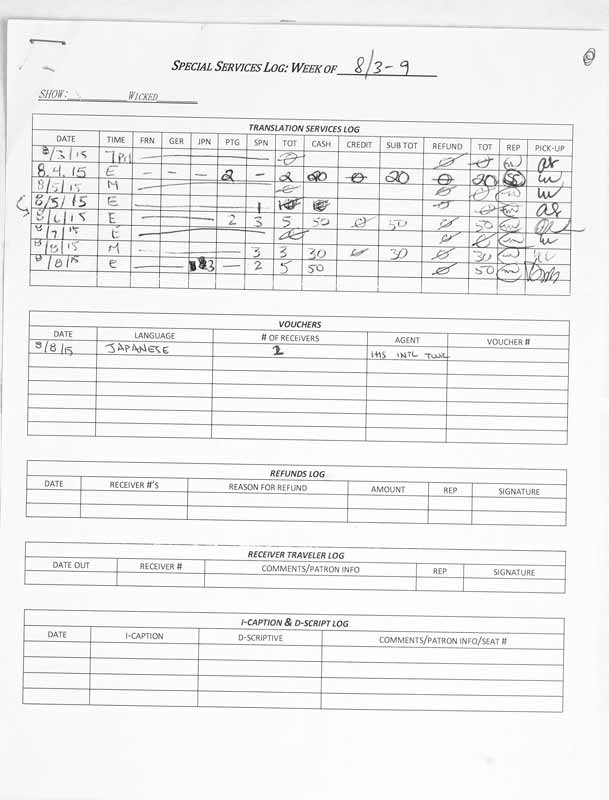 SPECIAL SERVICES LOG: WEEK OF 8/3-9
SHOW: WICKED
TRANSLATION SERVICES LOG
DATE TIME FRN GER JPN PTG SPN TOT CASH CREDIT SUB TOT REFUND TOT REP PICK-UP
8/3/15 7PM
8.4.15 E - - - 2 - 2 20 0 20 0 20
8/5/15 M
8/5/15 E 1
8/6/15 E 2 3 5 50 0 50 0 50
8/7/15 E
8/8/15 M 3 3 30 0 30 0 30
8/8/15 E 3 - 2 5 50 0 50
VOUCHERS
DATE LANGUAGE # OF RECEIVERS AGENT VOUCHER #
8/8/15 JAPANESE 2 IHS INTL
REFUNDS LOG
DATE RECEIVER #'S REASON FOR REFUND AMOUNT REP SIGNATURE
RECEIVER TRAVELER LOG
DATE OUT RECEIVER # COMMENTS/PATRON INFO REP SIGNATURE
I-CAPTION & D-SCRIPT LOG
DATE I-CAPTION D-SCRIPTIVE COMMENTS/PATRON INFO/SEAT #